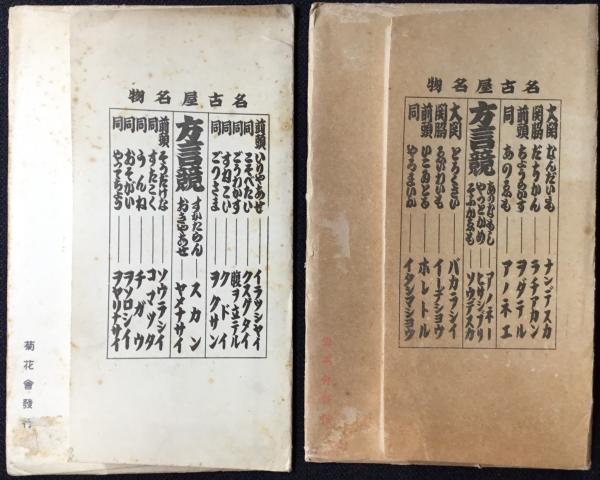 名古屋名物
前頭 いりやあせ イラツシヤイ
同 こそべたい クスグタイ
同 ごうわかす 腹ヲ立テル
同 すねこい クドイ
同 ごつさま ヲクサン
方言競
すかたらん スカン
おきやあせ ヤメナサイ
前頭 そうだげな ソウラシイ
同 すたこく コマツタ
同 うんね チガウ
同 おそがい ヲソロシイ
同 やつてちよう ヲヤリナサイ
菊花會發行
名古屋名物
大関 なんだいも ナンデスカ
関脇 だちかん ラチアカン
前頭 ちようらかす ヲダテル
同 あのゑも アノネエ
方言競
ありなもし アノネー
やつとかめ ヒサシブリ
そふかゑも ソウデスカ
大関 とろくさい バカラシイ
関脇 ゑいわいも イーデシヨウ
前頭 いこゐとる ホレトル
同 やろまいか イタシマシヨウ